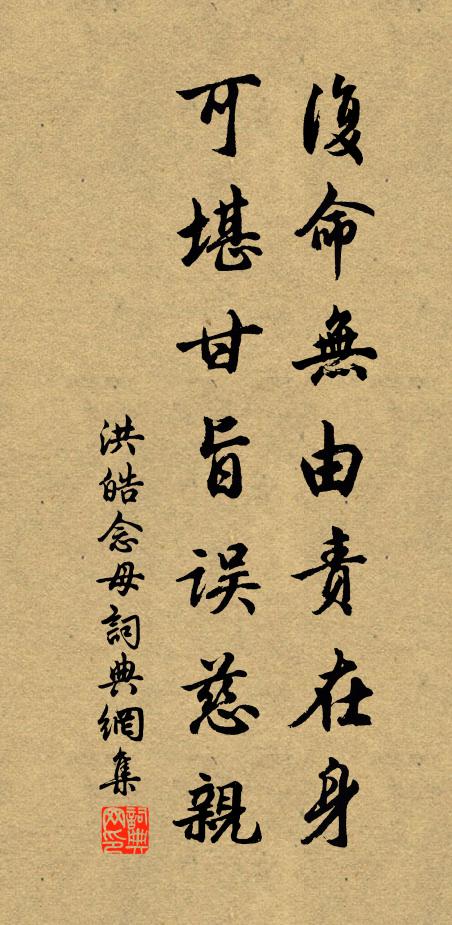 復命無由責在身
可堪甘旨误慈親
洪皓念母詞典網集
詞典网印